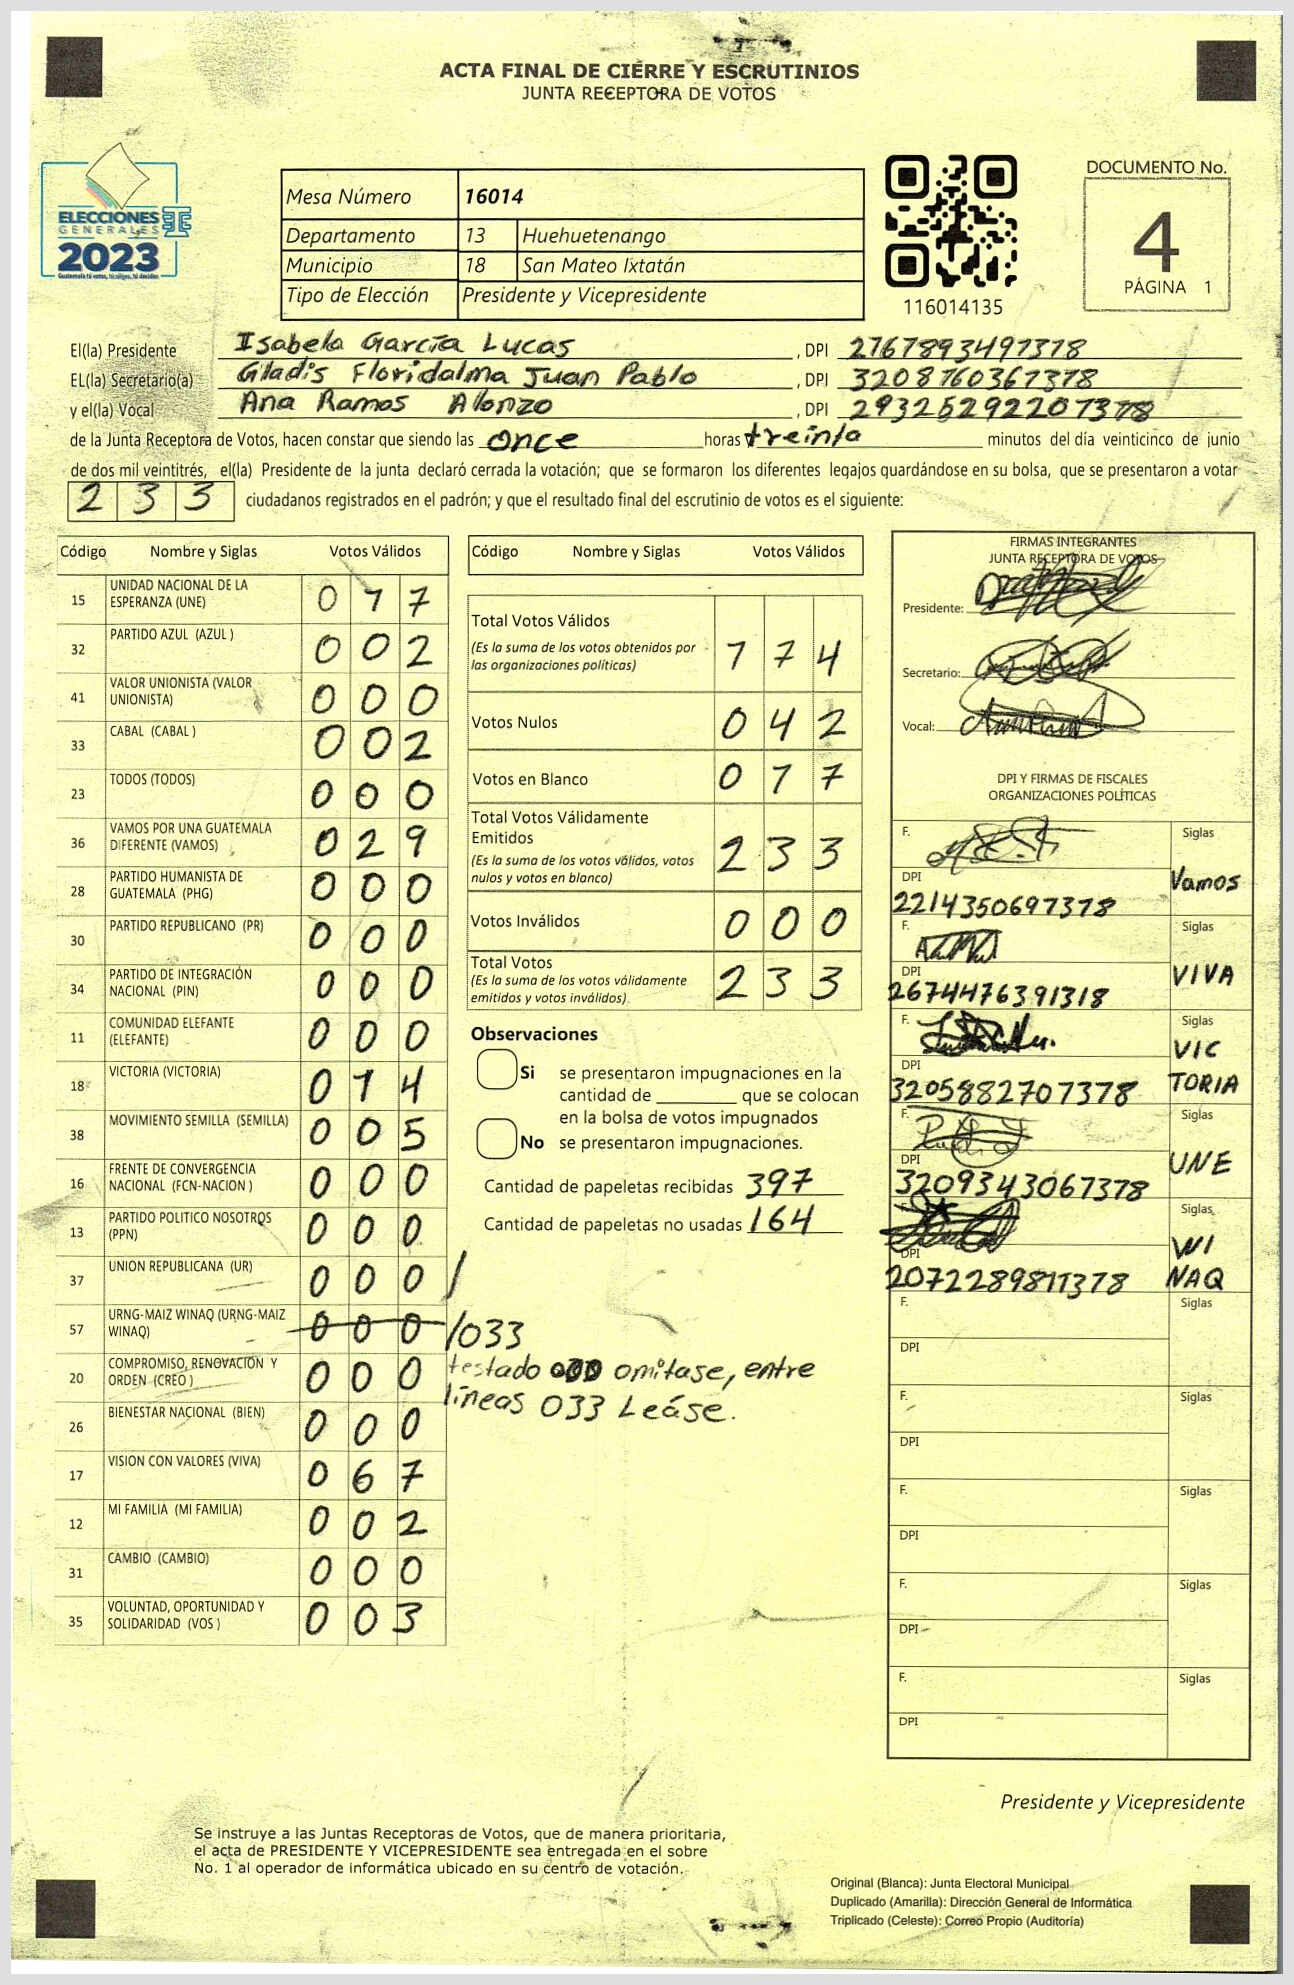 ACTA FINAL DE CIERRE Y ESCRUTINIOS
JUNTA RECEPTORA DE VOTOS
ELECCIONES
GENERALES
2023
Guatemala tú votas, tú eliges, tú decides
Mesa Número 16014
Departamento 13 Huehuetenango
Municipio 18 San Mateo Ixtatán
Tipo de Elección Presidente y Vicepresidente
116014135
DOCUMENTO No.
4
PÁGINA 1
El(la) Presidente Isabela García Lucas , DPI 2767893491318
EL(la) Secretario(a) Gladis Floridalma Juan Pablo , DPI 3208760361318
y el(la) Vocal Ana Ramos Alonzo , DPI
de la Junta Receptora de Votos, hacen constar que siendo las once horas treinta minutos del día veinticinco de junio
de dos mil veintitrés, el(la) Presidente de la junta declaró cerrada la votación; que se formaron los diferentes legajos quardándose en su bolsa, que se presentaron a votar
233 ciudadanos registrados en el padrón; y que el resultado final del escrutinio de votos es el siguiente:
Código Nombre y Siglas Votos Válidos
15 UNIDAD NACIONAL DE LA ESPERANZA (UNE) 017
32 PARTIDO AZUL (AZUL ) 002
41 VALOR UNIONISTA (VALOR UNIONISTA) 000
33 CABAL (CABAL ) 002
23 TODOS (TODOS) 000
36 VAMOS POR UNA GUATEMALA DIFERENTE (VAMOS) 029
28 PARTIDO HUMANISTA DE GUATEMALA (PHG) 000
30 PARTIDO REPUBLICANO (PR) 000
34 PARTIDO DE INTEGRACIÓN NACIONAL (PIN) 000
11 COMUNIDAD ELEFANTE (ELEFANTE) 000
18 VICTORIA (VICTORIA) 014
38 MOVIMIENTO SEMILLA (SEMILLA) 005
16 FRENTE DE CONVERGENCIA NACIONAL (FCN-NACION ) 000
13 PARTIDO POLITICO NOSOTROS (PPN) 000
37 UNION REPUBLICANA (UR) 000 /
57 URNG-MAIZ WINAQ (URNG-MAIZ WINAQ) 000 /033
20 COMPROMISO, RENOVACIÓN Y ORDEN (CREO ) 000
26 BIENESTAR NACIONAL (BIEN) 000
17 VISION CON VALORES (VIVA) 067
12 MI FAMILIA (MI FAMILIA) 002
31 CAMBIO (CAMBIO) 000
35 VOLUNTAD, OPORTUNIDAD Y SOLIDARIDAD (VOS ) 003
testado 000 omitase, entre
líneas 033 Leáse.
Código Nombre y Siglas Votos Válidos
Total Votos Válidos 174
(Es la suma de los votos obtenidos por
las organizaciones políticas)
Votos Nulos 042
Votos en Blanco 017
Total Votos Válidamente
Emitidos 233
(Es la suma de los votos válidos, votos
nulos y votos en blanco)
Votos Inválidos 000
Total Votos 233
(Es la suma de los votos válidamente
emitidos y votos inválidos)
Observaciones
Si se presentaron impugnaciones en la
cantidad de ________ que se colocan
en la bolsa de votos impugnados
No se presentaron impugnaciones.
Cantidad de papeletas recibidas 397
Cantidad de papeletas no usadas 164
FIRMAS INTEGRANTES
JUNTA RECEPTORA DE VOTOS
Presidente:
Secretario:
Vocal:
DPI Y FIRMAS DE FISCALES
ORGANIZACIONES POLÍTICAS
F. Siglas
DPI Vamos
2214350691318
F. Siglas
DPI VIVA
2674476391318
F. Siglas
VIC
DPI TORIA
3205882701318
F. Siglas
DPI UNE
3209343061318
F. Siglas
WI
DPI NAQ
2072289811318
F. Siglas
DPI
F. Siglas
DPI
F. Siglas
DPI
F. Siglas
DPI
F. Siglas
DPI
Presidente y Vicepresidente
Se instruye a las Juntas Receptoras de Votos, que de manera prioritaria,
el acta de PRESIDENTE Y VICEPRESIDENTE sea entregada en el sobre
No. 1 al operador de informática ubicado en su centro de votación.
Original (Blanca): Junta Electoral Municipal
Duplicado (Amarilla): Dirección General de Informática
Triplicado (Celeste): Correo Propio (Auditoría)